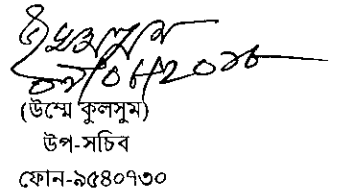 (উম্মে কুলসুম)
উপ-সচিব
ফোন-৯৫৪০৭৩০